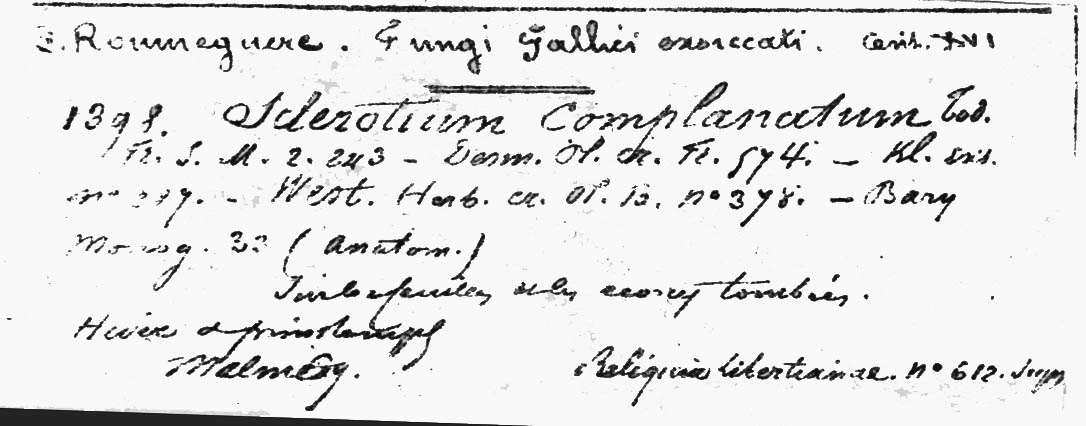 C. Roumeguere. Fungi Gallici exsiccati. Cent. XVI
1398. Sclerotium Complanatum Tod.
Fr. S. M. 2. 243 – Desm. Pl. cr. Fr. 574. – Kl. exs.
– West. Herb. cr. Pl. B. no 378. – Bary
Monog. 33 (Anatom.)
Sur les feuilles et les tombés.
Hiver & printemps
Malmédy. Reliquiae Libertianae. no 612.